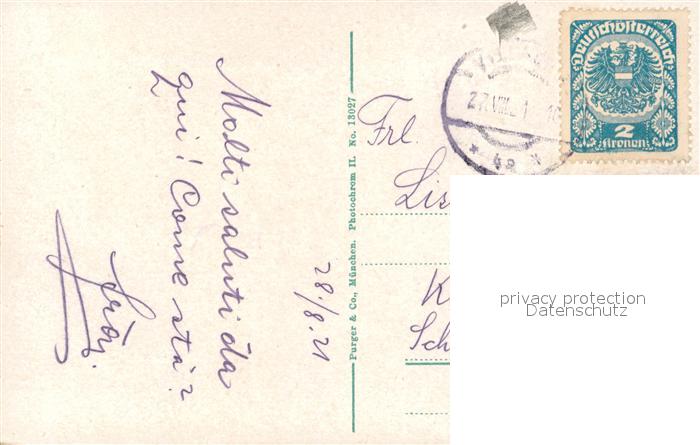 Molti saluti da
qui! Come sta?
28./8.21
Purger & Co., München. Photochrom II. No. 13027
Frl.
Deutschösterreich
2
Kronen
27.VIII.21
* 4a *
privacy protection
Datenschutz